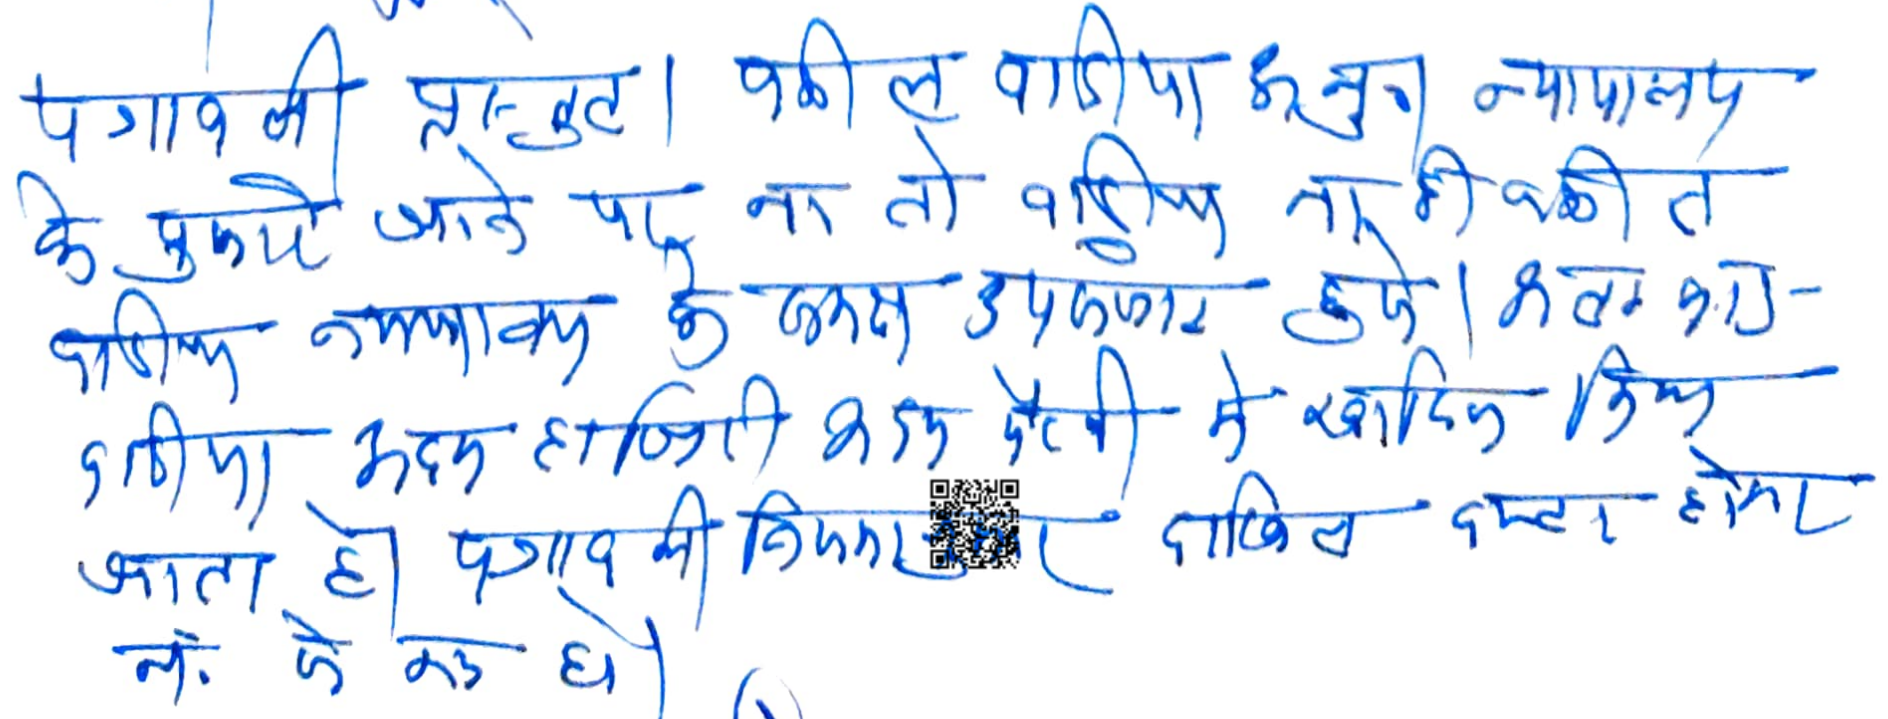 पत्रावली प्रस्तुत। वकील वादीया न्यायालय
के पुकारे जाने पर ना तो वादीया ना ही वकील
वादीया न्यायालय के समक्ष उपस्थित हुये। अतः वाद-
वादीया अदम हाजिरी अदम पैरवी में खारिज किया
जाता है। पत्रावली दाखिल दफ्तर होकर
नं. से कम हो।